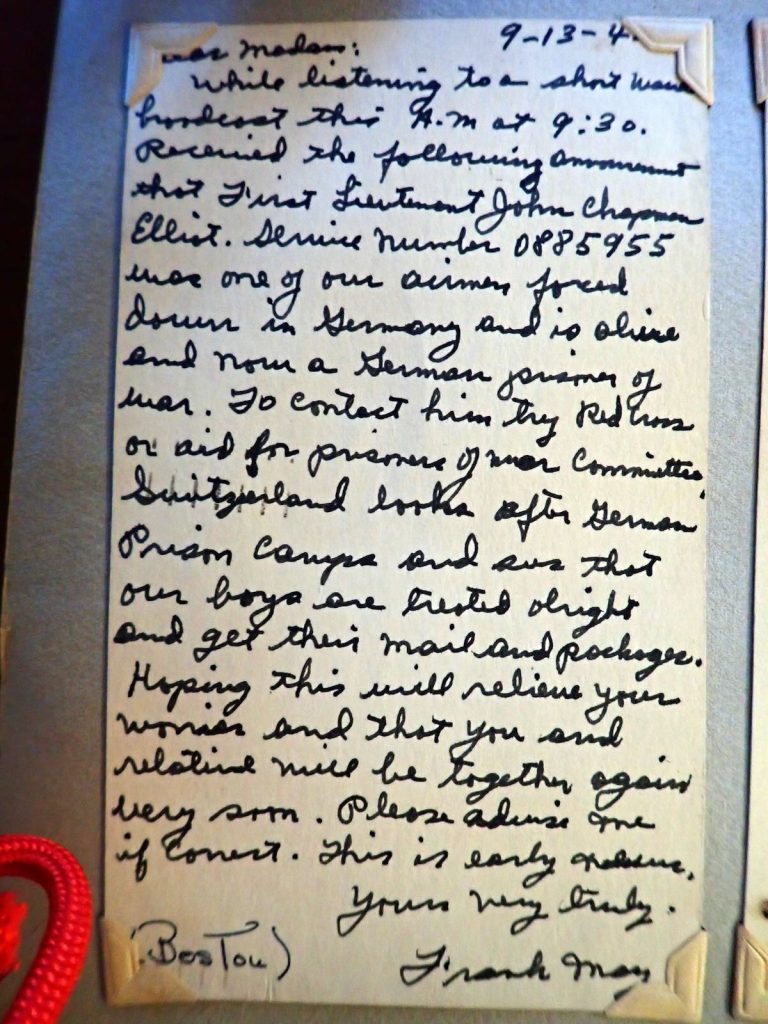 Dear Madam: 9-13-4
While listening to a short wave
broadcast this A.M at 9:30.
Received the following announcement
that First Lieutenant John Chapman
Elliot. Service number 0885955
was one of our airmen forced
down in Germany and is alive
and now a German prisoner of
war. To contact him try Red Cross
or aid for prisoners of war Committee,
Switzerland looks after German
Prison Camps and sees that
our boys are treated alright
and get their mail and packages.
Hoping this will relieve your
worries and that you and
relative will be together again
very soon. Please advise me
if Correct. This is early
Yours very truly.
(Boston) Frank May